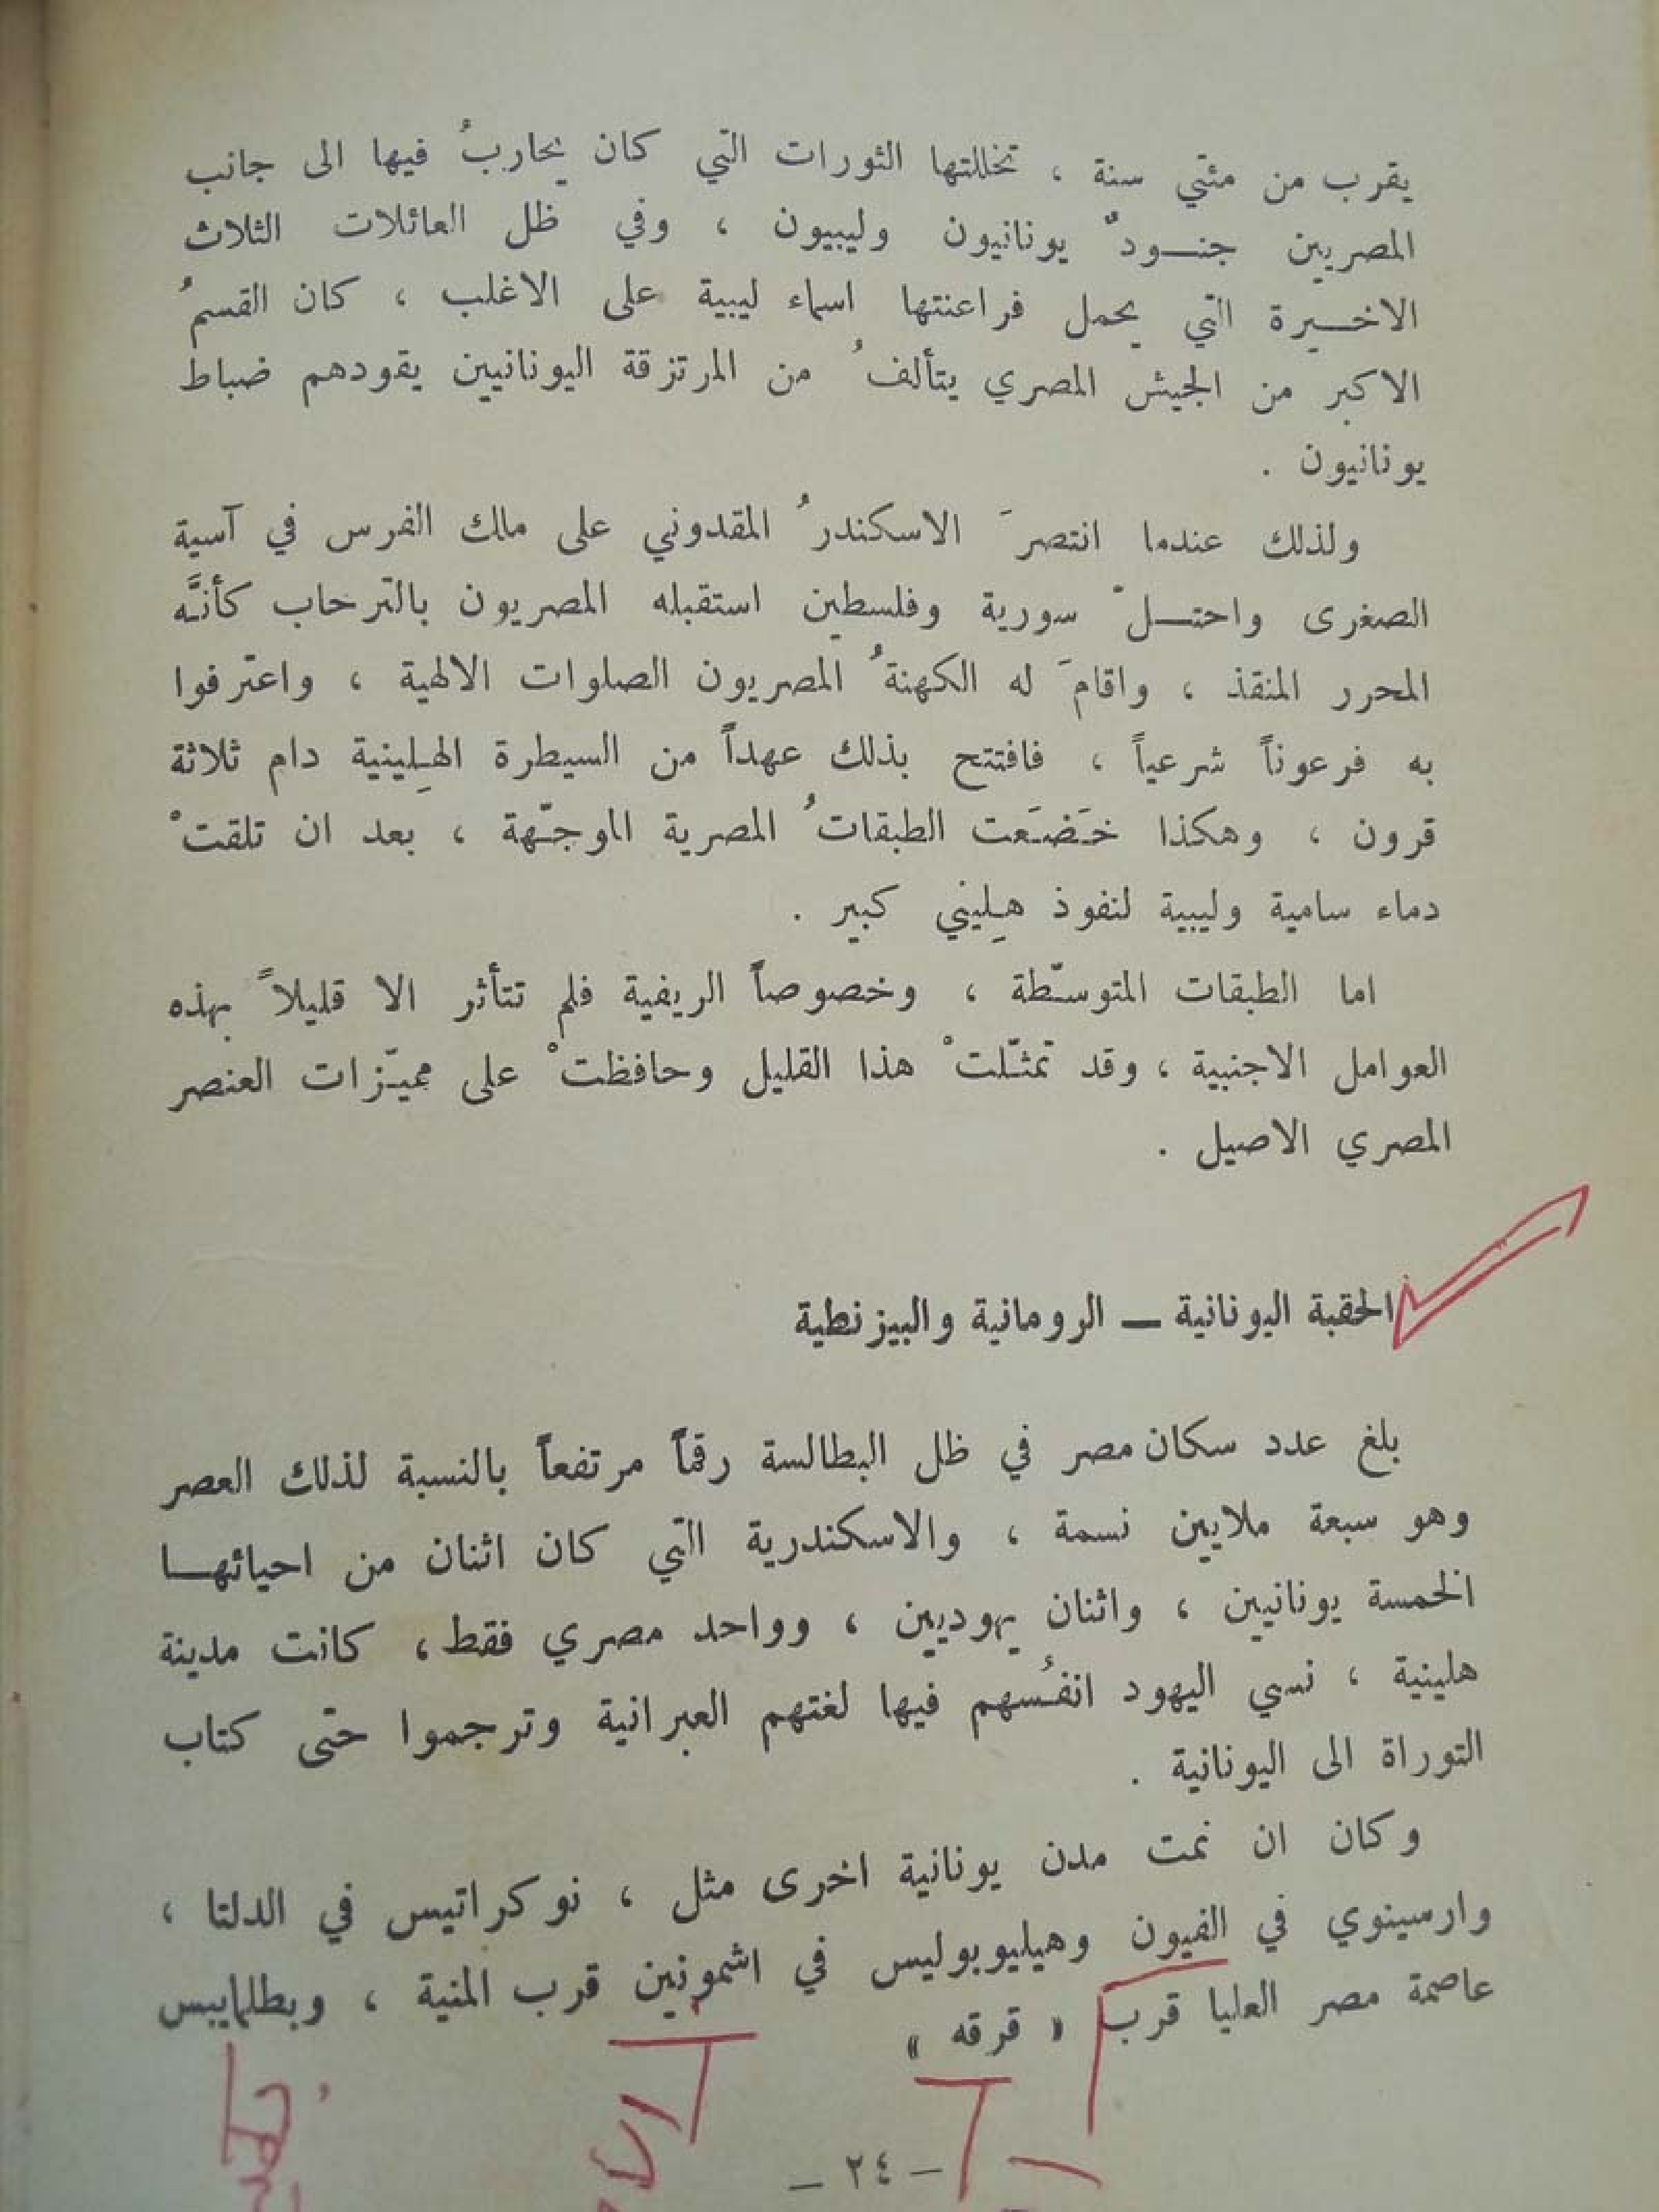 يقرب من مئتي سنة ، تخللتها الثورات التي كان يحاربُ فيها الى جانب
المصريين جنــودٌ يونانيون وليبيون ، وفي ظل العائلات الثلاث
الاخــيرة التي يحمل فراعنتها اسماء ليبية على الاغلب ، كان القسمُ
الاكبر من الجيش المصري يتألفُ من المرتزقة اليونانيين يقودهم ضباط
يونانيون .
ولذلك عندما انتصرَ الاسكندرُ المقدوني على مالك الفرس في آسية
الصغرى واحتــلّ سورية وفلسطين استقبله المصريون بالترحاب كأنَّه
المحرر المنقذ ، واقامَ له الكهنةُ المصريون الصلوات الالهية ، واعترفوا
به فرعوناً شرعياً ، فافتتح بذلك عهداً من السيطرة الهِلينية دام ثلاثة
قرون ، وهكذا خَضَعَت الطبقاتُ المصرية الموجّهة ، بعد ان تلقتْ
دماء سامية وليبية لنفوذ هِليني كبير .
اما الطبقات المتوسّطة ، وخصوصاً الريفية فلم تتأثر الا قليلاً بهذه
العوامل الاجنبية ، وقد تمثّلتْ هذا القليل وحافظتْ على مميّزات العنصر
المصري الاصيل .
الحقبة اليونانية — الرومانية والبيزنطية
بلغ عدد سكان مصر في ظل البطالسة رقماً مرتفعاً بالنسبة لذلك العصر
وهو سبعة ملايين نسمة ، والاسكندرية التي كان اثنان من احيائهــا
الخمسة يونانيين ، واثنان يهوديين ، وواحد مصري فقط ، كانت مدينة
هلينية ، نسي اليهود انفُسهم فيها لغتهم العبرانية وترجموا حتى كتاب
التوراة الى اليونانية .
وكان ان نمت مدن يونانية اخرى مثل ، نوكراتيس في الدلتا ،
وارسينوي في الفيون وهيليوبوليس في اشمونين قرب المنية ، وبطلمايبس
عاصمة مصر العليا قرب « قرقه »
— ٢٤ —